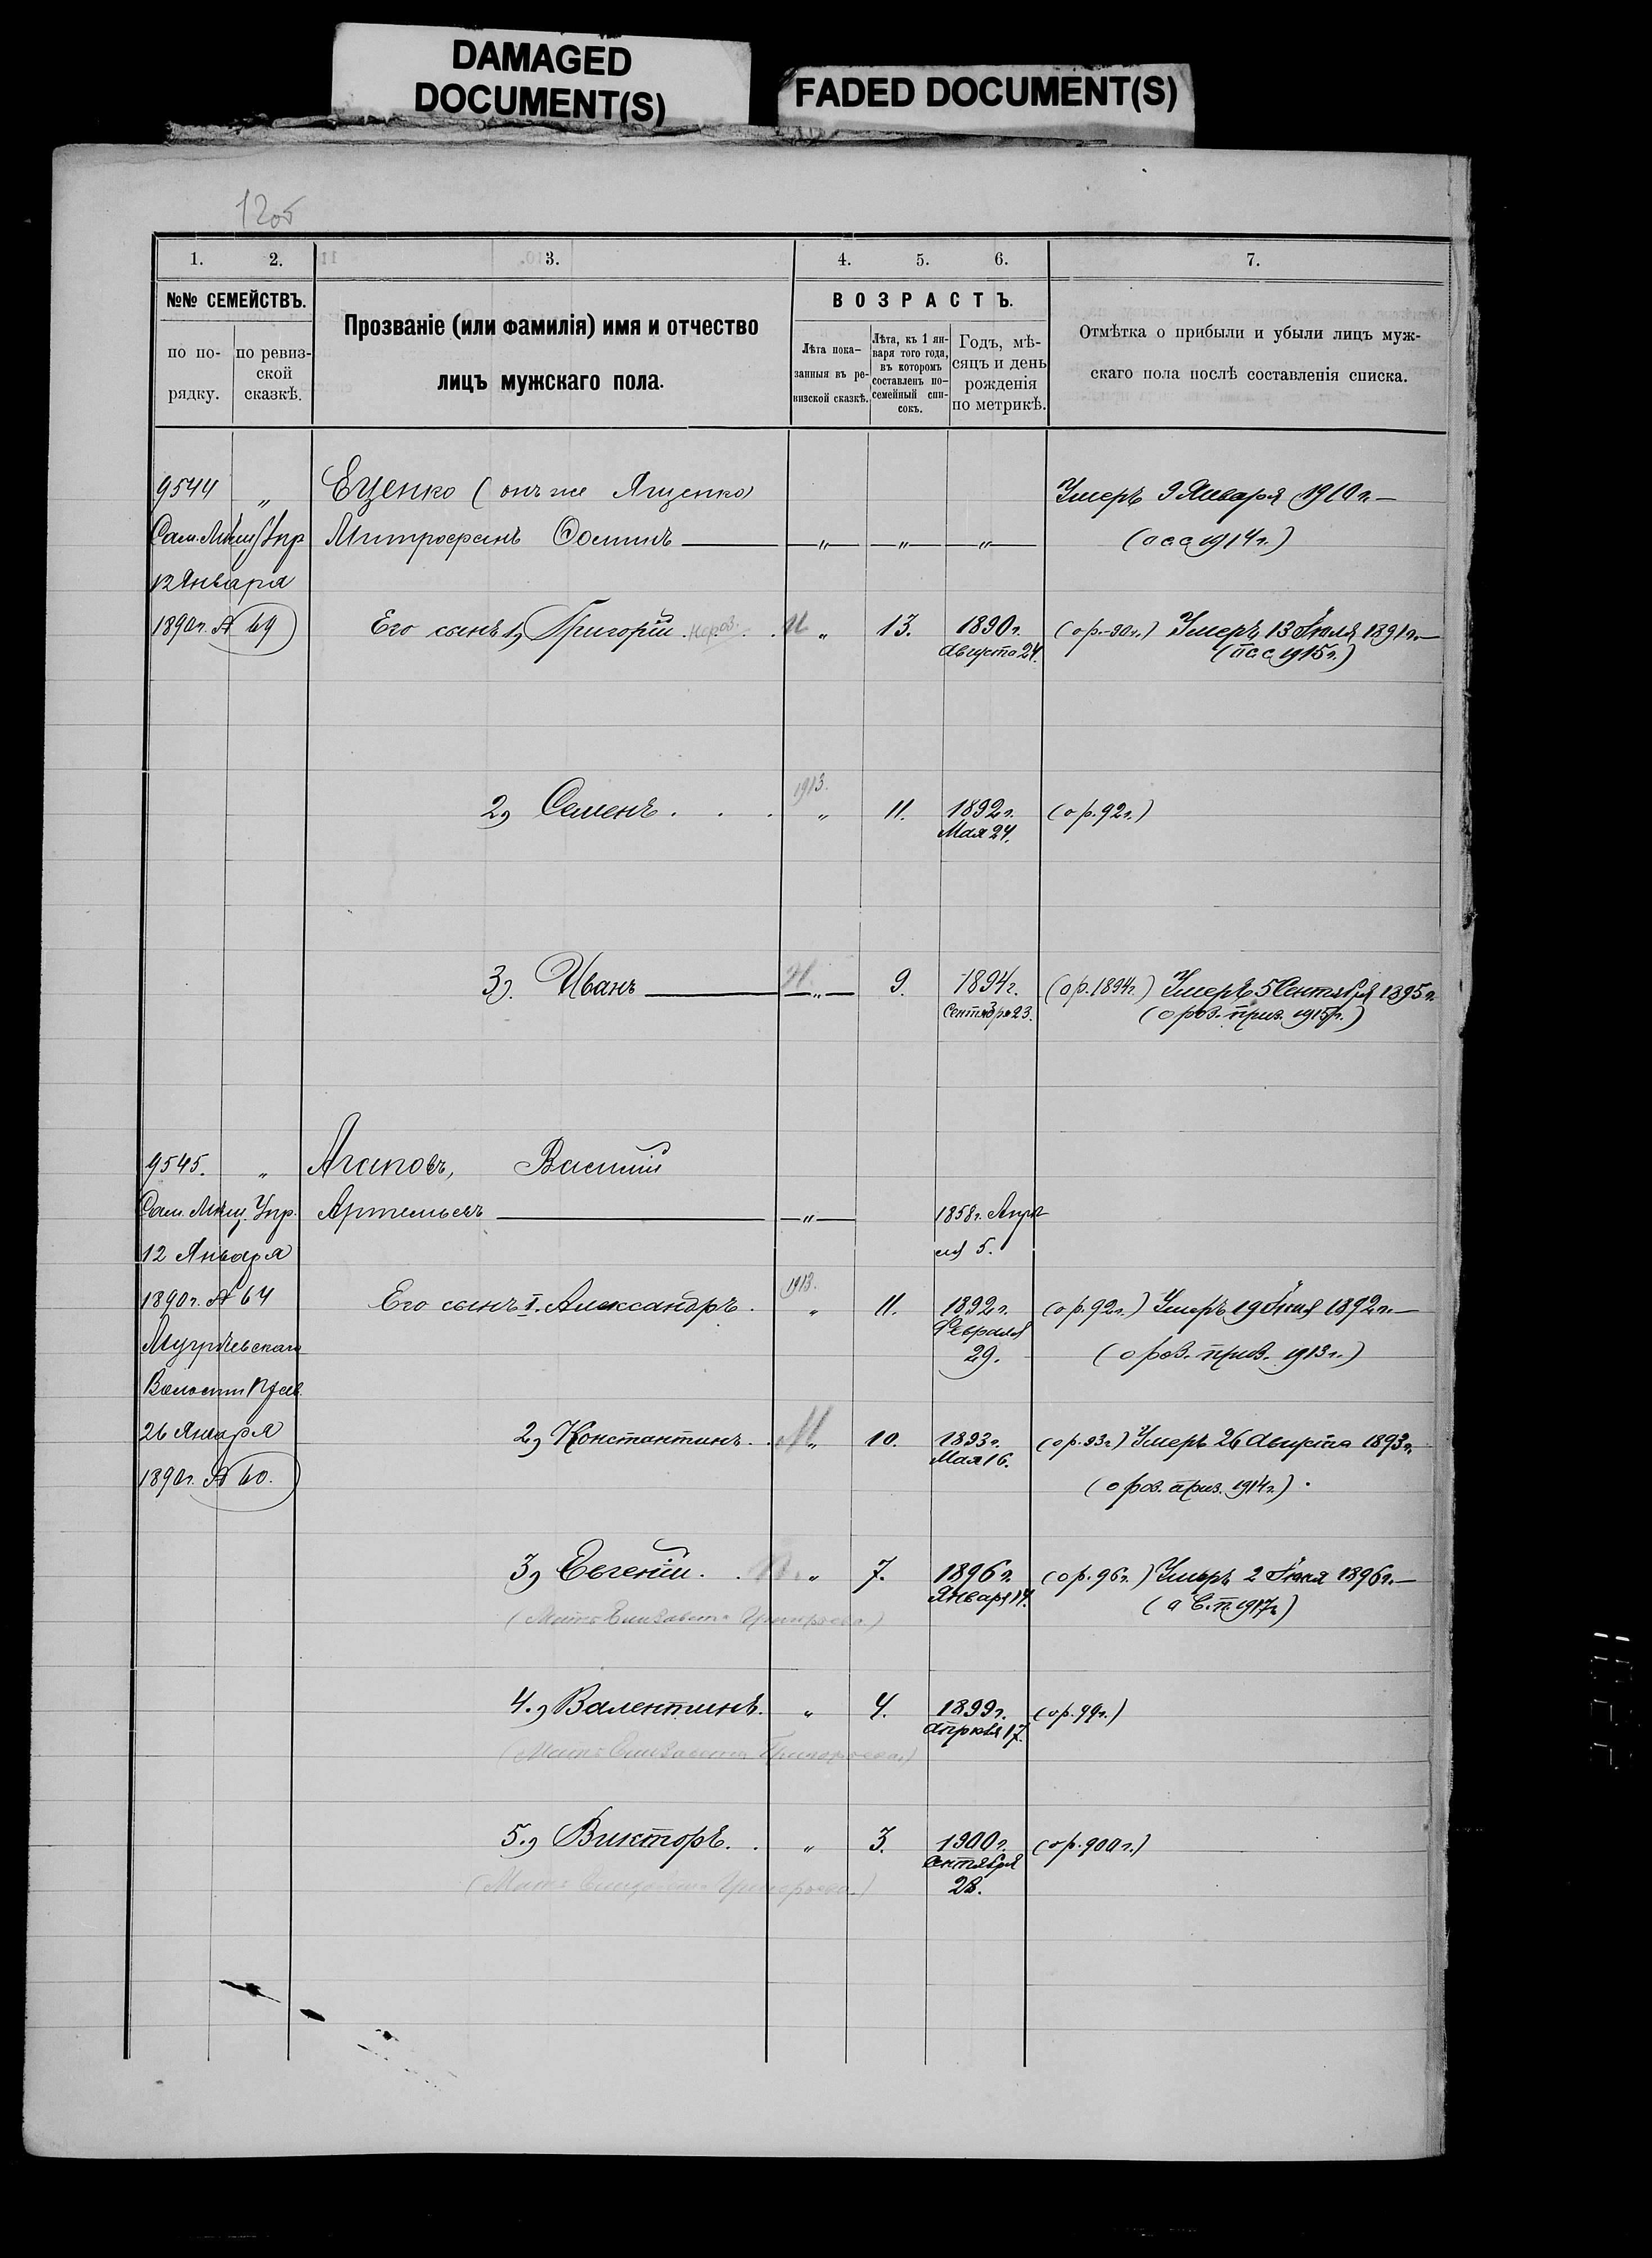 DAMAGED
DOCUMENT(S)
FADED DOCUMENT(S)
12об
1. 2. 3. 4. 5. 6. 7.
№№ СЕМЕЙСТВЪ.
по по-
рядку.
по ревиз-
ской
сказкѣ.
Прозваніе (или фамилія) имя и отчество
лицъ мужскаго пола.
ВОЗРАСТЪ.
Лѣта пока-
занныя въ ре-
визской сказкѣ.
Лѣта, къ 1 ян-
варя того года,
въ которомъ
составленъ по-
семейный спи-
сокъ.
Годъ, мѣ-
сяцъ и день
рожденія
по метрикѣ.
Отмѣтка о прибыли и убыли лицъ муж-
скаго пола послѣ составленія списка.
9544 „ Еценко (онъ же Яценко) Умеръ 9 Января 1910 г. —
Сам. Мѣщ. Упр. Митрофанъ Ѳоминъ — „ — „ — „ — (о с с 1914 г.)
12 Января
1890 г. № 69 Его сынъ 1, Григорій . „ 13. 1890 г. (о р. 90 г.) Умеръ 13 Іюля 1891 г. —
Августа 24. (п с с 1915 г.)
1913.
2, Семенъ . . . „ 11. 1892 г. (о р. 92 г.)
Мая 24.
3). Иванъ — „ — 9. 1894 г. (о р. 1894 г.) Умеръ 5 Сентября 1895 г.
Сентября 23. (о роз. приз. 1915 г.)
9545. „ Агаповъ, Василій
Сам. Мѣщ. Упр. Артемьевъ — „ — 1858 г. Апрѣ
12 Января ля 5.
1913.
1890 г. № 64 Его сынъ I. Александръ . „ 11. 1892 г. (о р. 92 г.) Умеръ 19 Іюня 1892 г. —
Февраля
29. (о роз. приз. 1913 г.)
Волостн. Прав.
26 Января 2, Константинъ . . М „ 10. 1893 г. (о р. 93 г.) Умеръ 26 Августа 1893 г.
Мая 16.
1890 г. № 60. (о роз. приз. 1914 г.) .
3, Евгеній . . „ 7. 1896 г. (о р. 96 г.) Умеръ 2 Іюля 1896 г. —
Января 14.
(Мать Елизавета Григорьева.)
4., Валентинъ. „ 4. 1899 г. (о р. 99 г.)
Апрѣля 17.
(Мать Елизавета Григорьева.)
5., Викторъ. . „ 3. 1900 г. (о р. 900 г.)
Октября
28.
(Мать Елизавета Григорьева.)